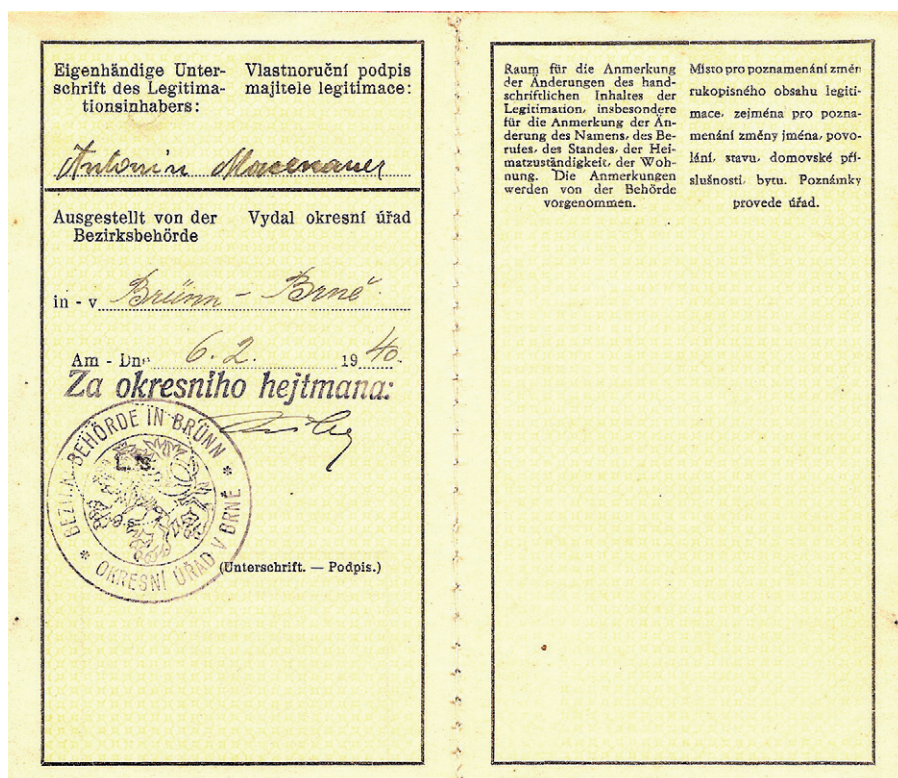 Eigenhändige Unter-
schrift des Legitima-
tionsinhabers:
Vlastnoruční podpis
majitele legitimace:
Antonin
Ausgestellt von der
Bezirksbehörde
Vydal okresní úřad
in - v Brünn - Brně.
Am - Dne 6. 2. 1940.
Za okresního hejtmana:
BEZIRKSBEHÖRDE IN BRÜNN
* OKRESNÍ ÚŘAD V BRNĚ *
L. S.
(Unterschrift. — Podpis.)
Raum für die Anmerkung
der Änderungen des hand-
schriftlichen Inhaltes der
Legitimation, insbesondere
für die Anmerkung der Än-
derung des Namens, des Be-
rufes, des Standes, der Hei-
matzuständigkeit, der Woh-
nung. Die Anmerkungen
werden von der Behörde
vorgenommen.
Místo pro poznamenání změn
rukopisného obsahu legiti-
mace, zejména pro pozna-
menání změny jména, povo-
lání, stavu, domovské pří-
slušnosti, bytu. Poznámky
provede úřad.